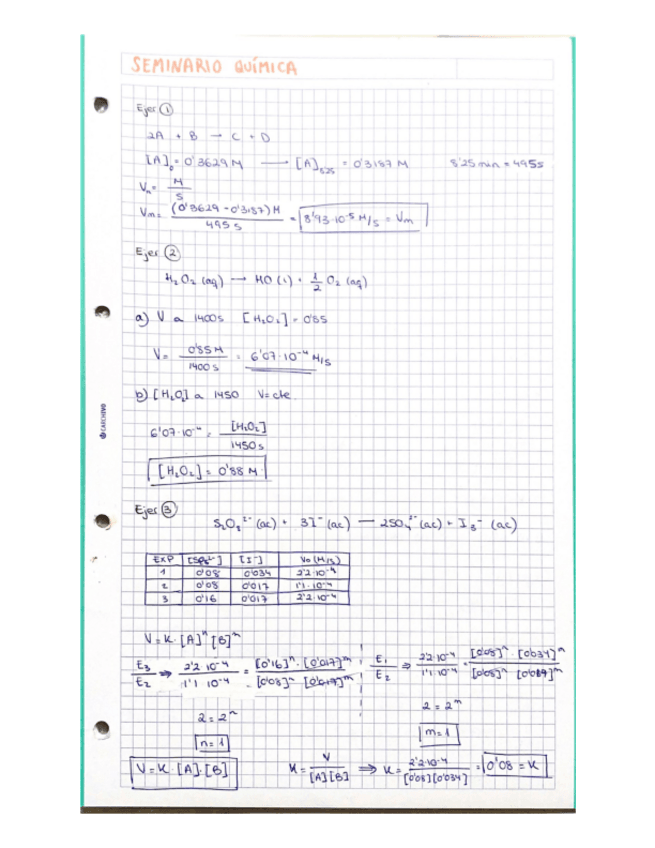 SEMINARIO QUÍMICA
Ejer ①
2A + B → C + D
[A]₀ = 0'3629 M → [A]₈,₂₅ = 0'3187 M 8'25 min = 495 s
Vₘ = M/S
Vₘ = (0'3629 - 0'3187) M / 495 s = 8'93·10⁻⁵ M/s = Vm
Ejer ②
H₂O₂ (aq) → HO (l) + 1/2 O₂ (aq)
a) V a 1400s [H₂O₂] = 0'85
V = 0'85 M / 1400 s = 6'07·10⁻⁴ M/s
b) [H₂O₂] a 1450 V = cte.
6'07·10⁻⁴ = [H₂O₂] / 1450 s
[H₂O₂] = 0'88 M
CATCHIVO
Ejer ③
S₂O₈²⁻ (ac) + 3I⁻ (ac) — 2SO₄²⁻ (ac) + I₃⁻ (ac)
EXP [S₂O₈²⁻] [I⁻] Vo (M/s)
1 0'08 0'034 2'2·10⁻⁴
2 0'08 0'017 1'1·10⁻⁴
3 0'16 0'017 2'2·10⁻⁴
V = K·[A]ⁿ[B]ᵐ
E₃/E₂ ⇒ 2'2 10⁻⁴ / 1'1 10⁻⁴ = [0'16]ⁿ·[0'017]ᵐ / [0'08]ⁿ [0'017]ᵐ E₁/E₂ ⇒ 2'2 10⁻⁴ / 1'1 10⁻⁴ = [0'08]ⁿ·[0'034]ᵐ / [0'08]ⁿ [0'017]ᵐ
2 = 2ⁿ 2 = 2ᵐ
n = 1 m = 1
V = K·[A]·[B] K = V / [A][B] ⇒ K = 2'2·10⁻⁴ / [0'08][0'034] = 0'08 = K